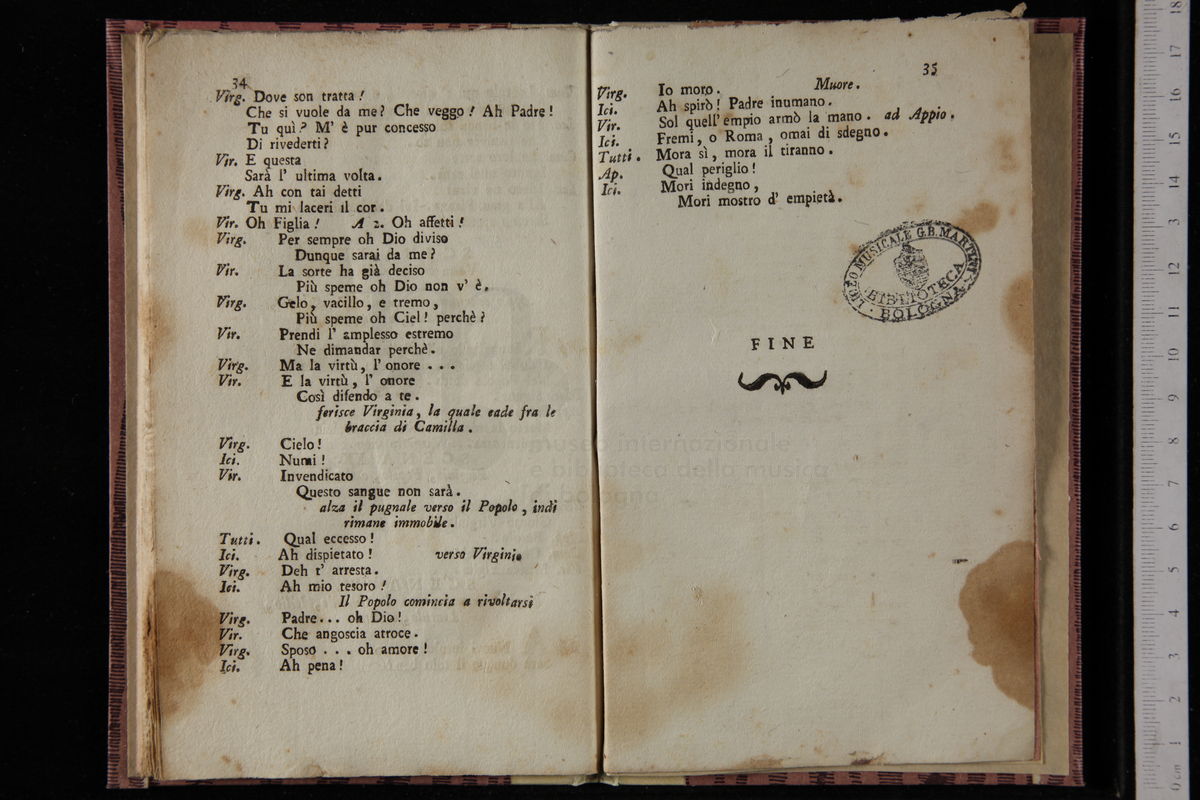 34
Virg. Dove son tratta !
Che si vuole da me? Che veggo ! Ah Padre !
Tu quì? M' è pur concesso
Di rivederti?
Vir. E questa
Sarà l' ultima volta.
Virg. Ah con tai detti
Tu mi laceri il cor.
Vir. Oh Figlia ! A 2. Oh affetti !
Virg. Per sempre oh Dio diviso
Dunque sarai da me?
Vir. La sorte ha già deciso
Più speme oh Dio non v' è.
Virg. Gelo, vacillo, e tremo,
Più speme oh Ciel! perchè?
Vir. Prendi l' amplesso estremo
Ne dimandar perchè.
Virg. Ma la virtù, l' onore . . .
Vir. E la virtù, l' onore
Così difendo a te.
ferisce Virginia, la quale eade fra le
braccia di Camilla.
Virg. Cielo!
Ici. Numi!
Vir. Invendicato
Questo sangue non sarà.
alza il pugnale verso il Popolo, indi
rimane immobile.
Tutti. Qual eccesso!
Ici. Ah dispietato! verso Virginio
Virg. Deh t' arresta.
Ici. Ah mio tesoro !
Il Popolo comincia a rivoltarsi
Virg. Padre... oh Dio!
Vir. Che angoscia atroce.
Virg. Sposo . . . oh amore!
Ici. Ah pena!
35
Virg. Io moro. Muore.
Ici. Ah spirò! Padre inumano.
Vir. Sol quell' empio armò la mano. ad Appio.
Ici. Fremi, o Roma, omai di sdegno.
Tutti. Mora sì, mora il tiranno.
Ap. Qual periglio!
Ici. Mori indegno,
Mori mostro d' empietà.
LICEO MUSICALE G.B. MARTINI
BIBLIOTECA
BOLOGNA
FINE
museo internazionale
e biblioteca della musica
di bologna
0 cm 1 2 3 4 5 6 7 8 9 10 11 12 13 14 15 16 17 18